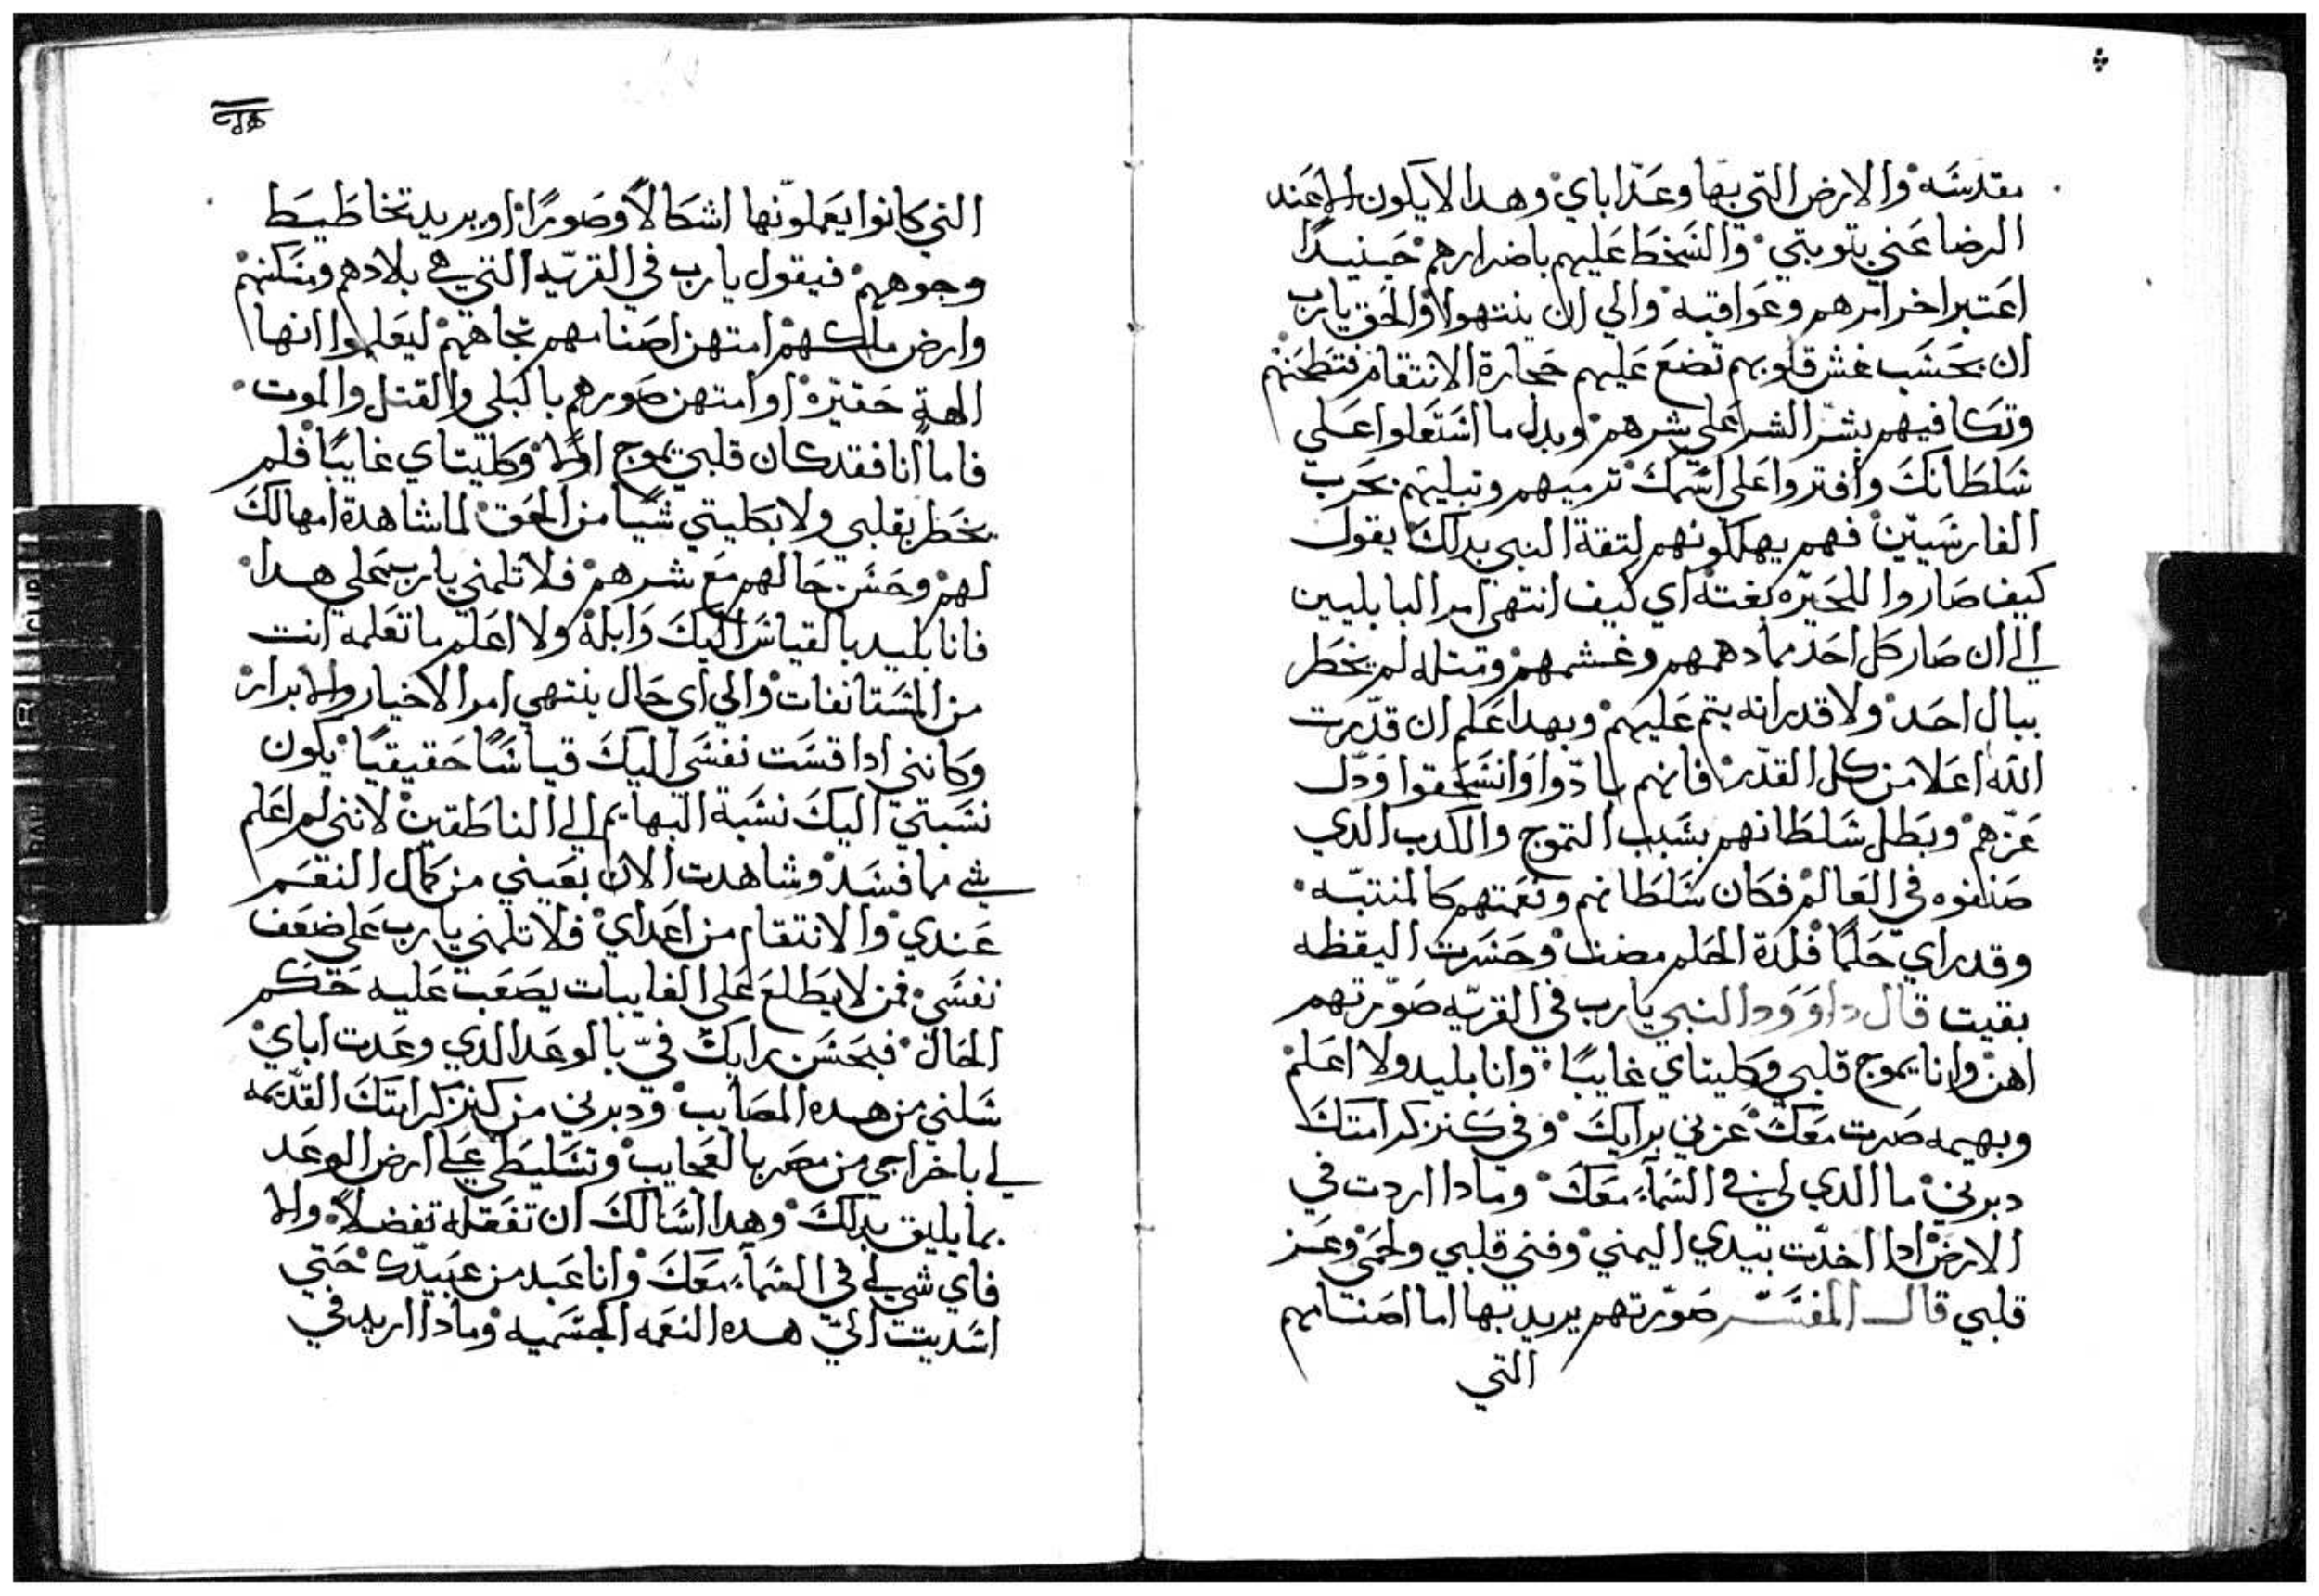 مقدسَه والارض التي بها وعَد اباي وهدا لا يكون الا عَند
الرضا عَني بتوبتي والسَخط عَليهم باضرارهم حَينيدًا
اعَتبر اخر امرهم وعَواقبه والي اين ينتهوا والحَق يارب
ان بحَسَب غش قلوبهم تضعَ عَليهم حَجارة الانتقام فتطحَنهم
وتكافيهم بشر الشر عَلي شرهم وبدل ما اسَتعَلوا عَلي
سَلطانكَ وافتروا عَلي اسَمكَ ترميهم وتبليهم بحَرب
الفارسَيين فهم يهلكونهم لتقة النبي بدلكَ يقول
كيف صَاروا للحَيره بغته اي كيف انتهي امر البابليين
الي ان صَار كل احَد مما دهمهم وغشمهم ومتله لم يخطر
ببال احَد ولا قدر انه يتم عَليهم وبهدا عَلم ان قدرت
الله اعَلا من كل القدر فانهم بادوا وانسَحَقوا ودل
عَزهم وبَطل سَلطانهم بسَبب التموج والكدب الدي
صَنعَوه في العَالم فكان سَلطانهم ونعَمتهم كالمنتبه
وقد راي حَلمًا فلدة الحَلم مضت وحَسَرت اليقظه
بقيت قال داوود النبي يارب في القريه صَورتهم
اهن وانا يموج قلبي وكليتاي غايبًا وانا بليد ولا اعَلم
وبهيمه صَرت معَكَ عَزني برايكَ وفي كنز كرامتكَ
دبرني ما الدي لي في السَمآء معَكَ ومادا اردت في
الارض ادا اخدت بيدي اليمني وفني قلبي ولحَمي وعَز
قلبي قال المفسَر صَورتهم يريد بها اما اصَنامهم
التي
التي كانوا يعَملونها اشكالاً وصَورًا او يريد تخاطيط
وجوههم فيقول يارب في القريه التي هي بلادهم ومسَكنهم
وارض ملكهم امتهن اصَنامهم تجاههم ليعَلموا انها
الهة حَقيره او امتهن صَورهم بالبلي والقتل والموت
فاما انا فقد كان قلبي يموج اولا وكليتاي غايبًا فلم
يخطر بقلبي ولا بكليتي شيًا من الحَق لما شاهدة امهالكَ
لهم وحَسَن حَالهم معَ شرهم فلا تلمني يارب عَلي هدا
فانا بليد بالقياسَ اليكَ وابله ولا اعَلم ما تعَلمه انت
من المسَتانفات والي اي حَال ينتهي امر الاخيار والابرار
وكانني ادا قسَت نفسَي اليكَ قياسًا حَقيقيًا يكون
نسَبتي اليكَ نسَبة البهايم الي الناطقين لانني لم اعَلم
شي مما فسَد وشاهدت الان بعَيني من كمال النعَم
عَندي والانتقام من اعَداي فلا تلمني يارب عَلي ضعَف
نفسَي فمن لا يطلعَ عَلي الغايبات يصَعَب عَليه حَكم
الحَال فبحَسَن رايكَ فيّ بالوعَد الدي وعَدت اباي
سَلني من هده المصَايب ودبرني من كنز كرامتكَ القديمه
لي باخراجي من مصَر بالعَجايب وتسَليطي عَلي ارض الوعَد
بما يليق بدلكَ وهدا اسَالكَ ان تفعَله تفضلاً والا
فاي شي لي في السَمآء معَكَ وانا عَبد من عَبيدك حَتي
اسَديت الي هده النعَمه الجسَميه ومادا اريد في